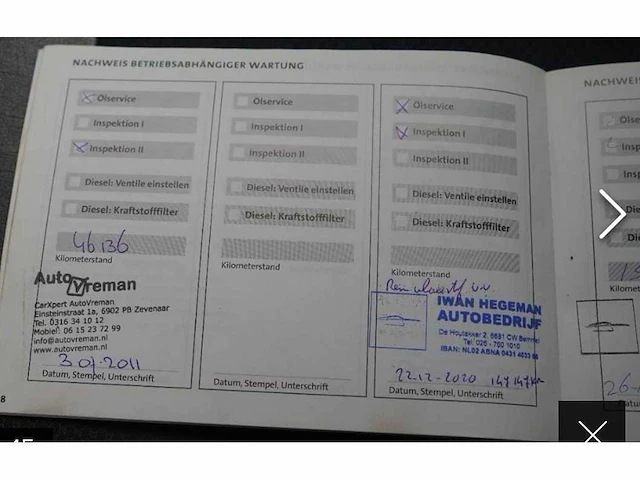 NACHWEIS BETRIEBSABHÄNGIGER WARTUNG
Ölservice
Inspektion I
Inspektion II
Diesel: Ventile einstellen
Diesel: Kraftstofffilter
46136
Kilometerstand
AutoVreman
CarXpert AutoVreman
Einsteinstraat 1a, 6902 PB Zevenaar
Tel. 0316 34 10 12
Mobiel: 06 15 23 72 99
info@autovreman.nl
www.autovreman.nl
Datum, Stempel, Unterschrift
8
Ölservice
Inspektion I
Inspektion II
Diesel: Ventile einstellen
Diesel: Kraftstofffilter
Kilometerstand
Datum, Stempel, Unterschrift
Ölservice
Inspektion I
Inspektion II
Diesel: Ventile einstellen
Diesel: Kraftstofffilter
Kilometerstand
IWAN HEGEMAN
AUTOBEDRIJF
De Houtakker 2, 6681 CW Bemmel
Tel: 026 - 700 1010
22.12-2020 147147km
Datum, Stempel, Unterschrift
NACHWEIS